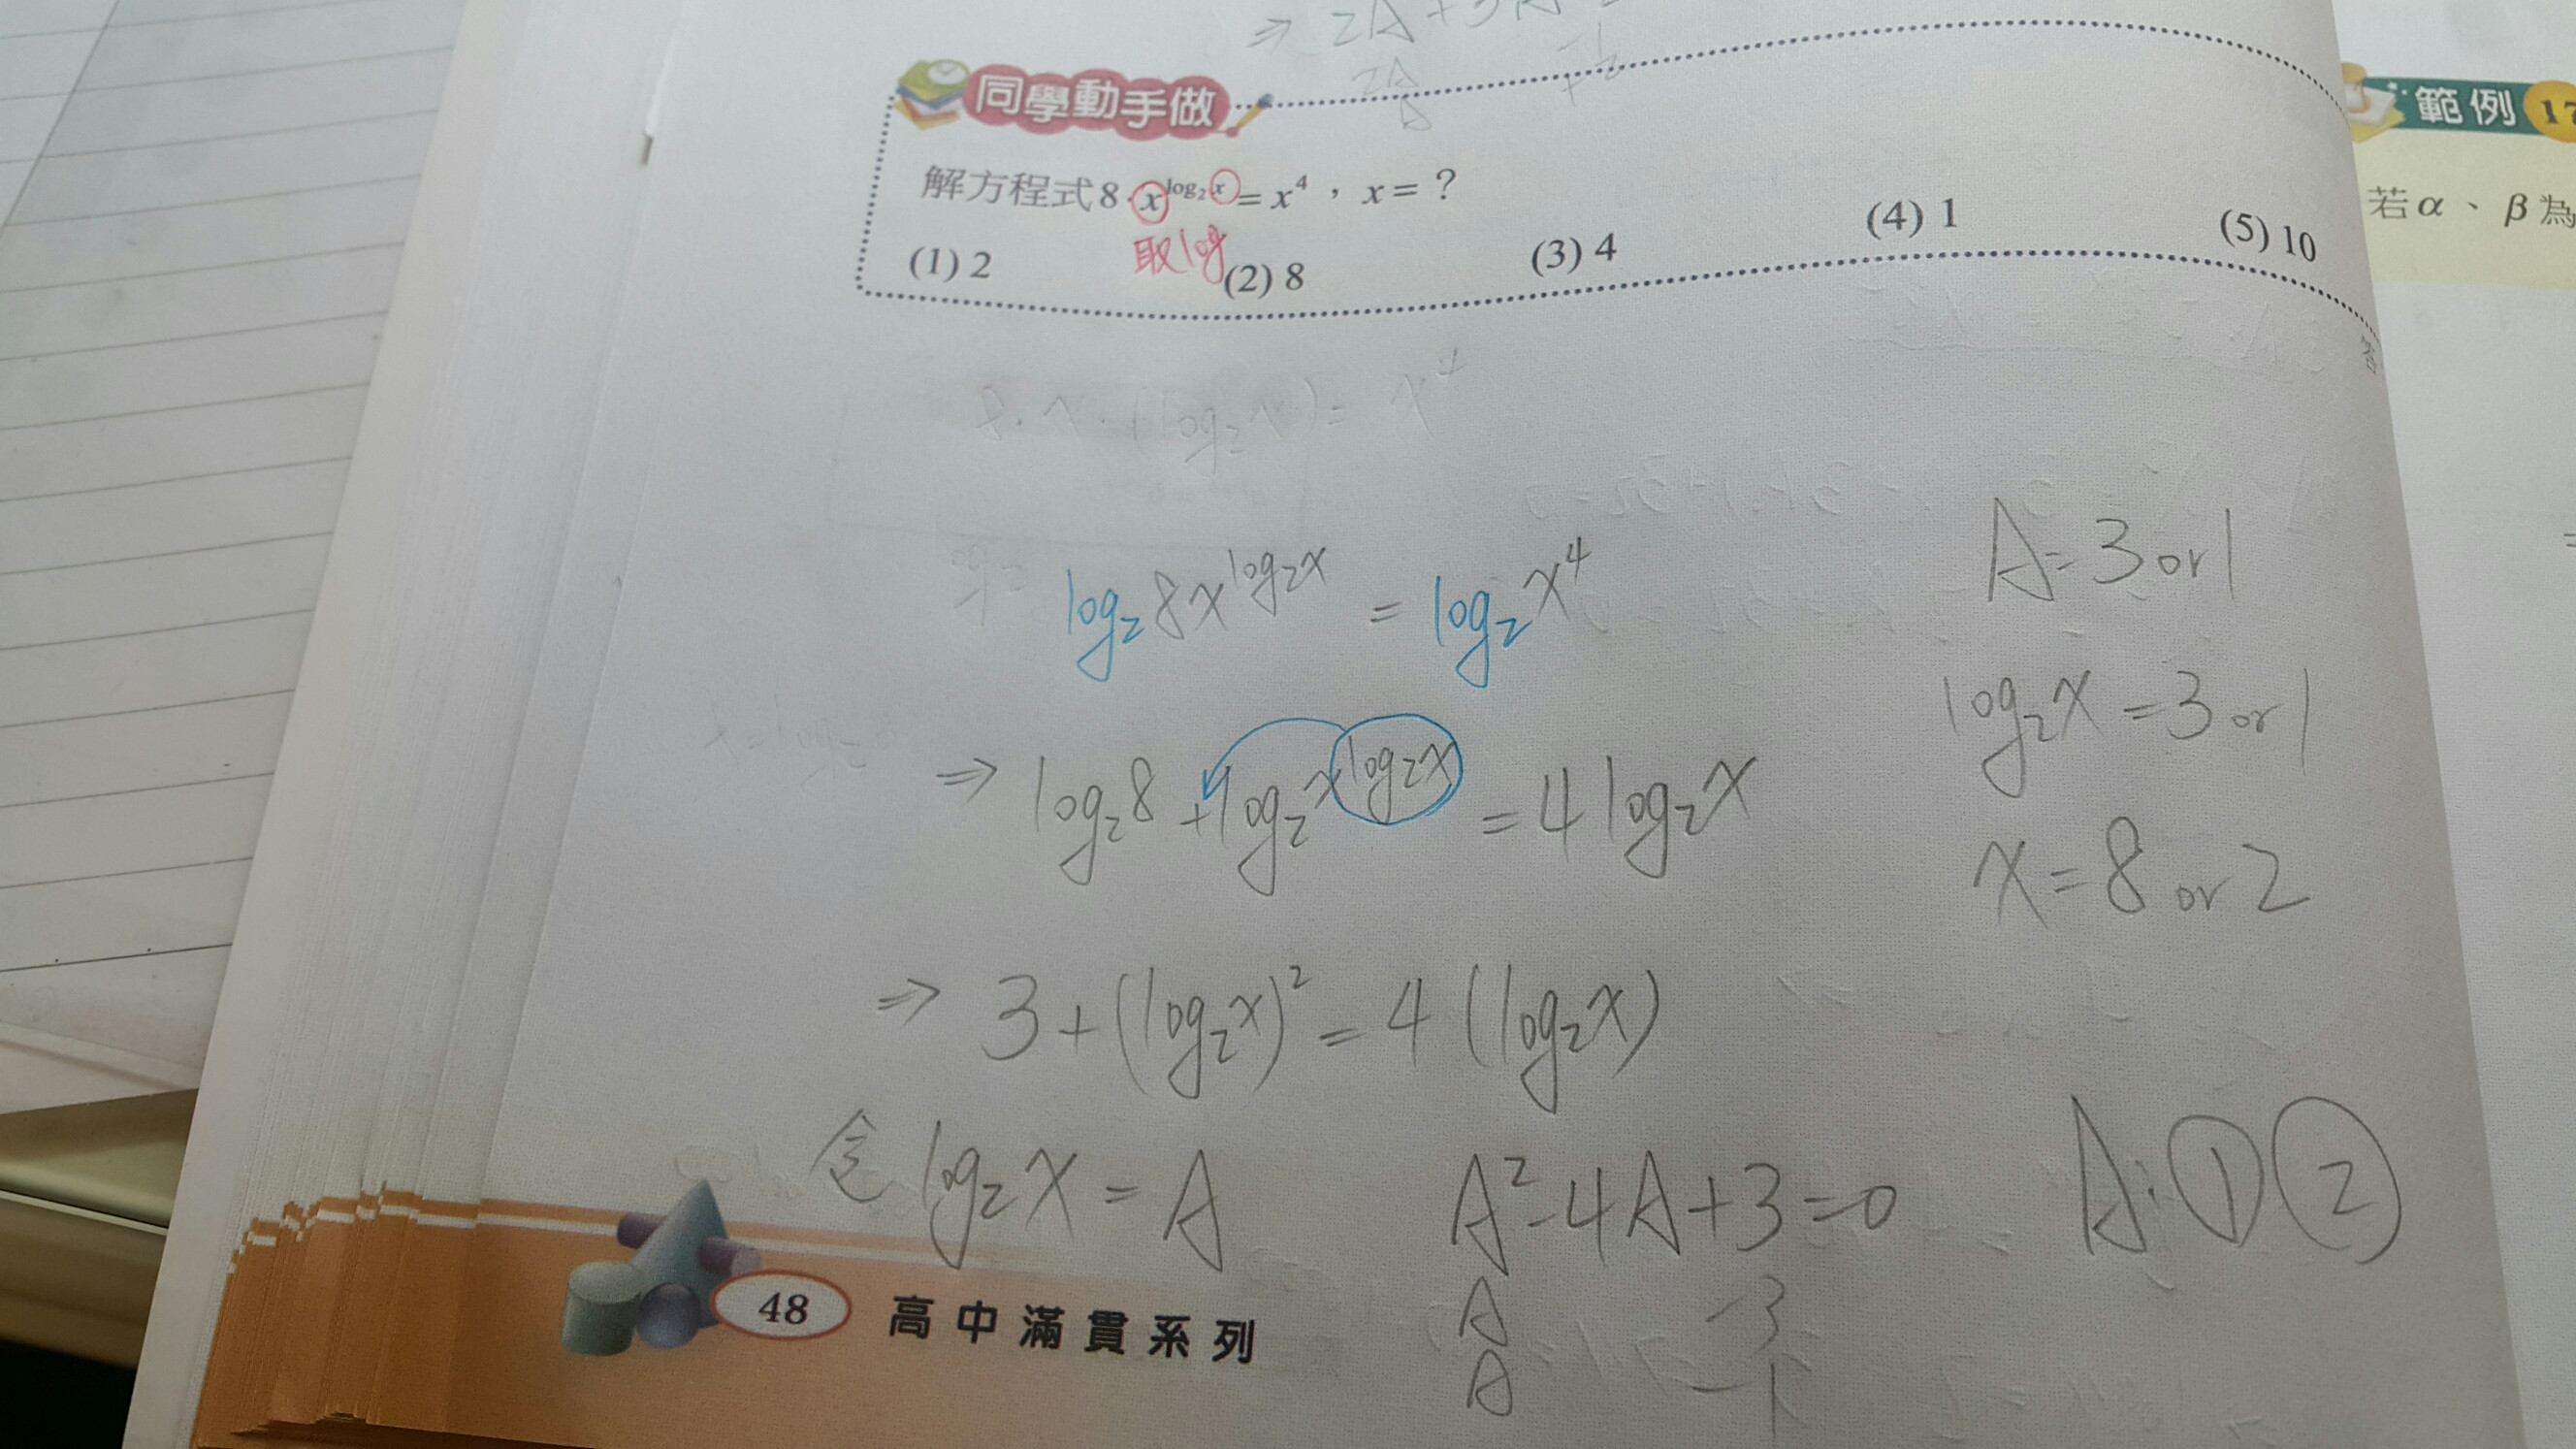 ⇒ 2A + 3A
2A -1
A +2
同學動手做
解方程式 8·x^log₂x = x⁴ , x = ?
取log
(1) 2 (2) 8 (3) 4 (4) 1 (5) 10
範例 17
若 α 、 β 為
8·x·(log₂x) = x⁴
log₂8x^log₂x = log₂x⁴
⇒ log₂8 + log₂x^log₂x = 4log₂x
⇒ 3 + (log₂x)² = 4(log₂x)
令 log₂x = A
A² - 4A + 3 = 0
A -3
A -1
A = 3 or 1
log₂x = 3 or 1
x = 8 or 2
A: ① ②
48 高中滿貫系列